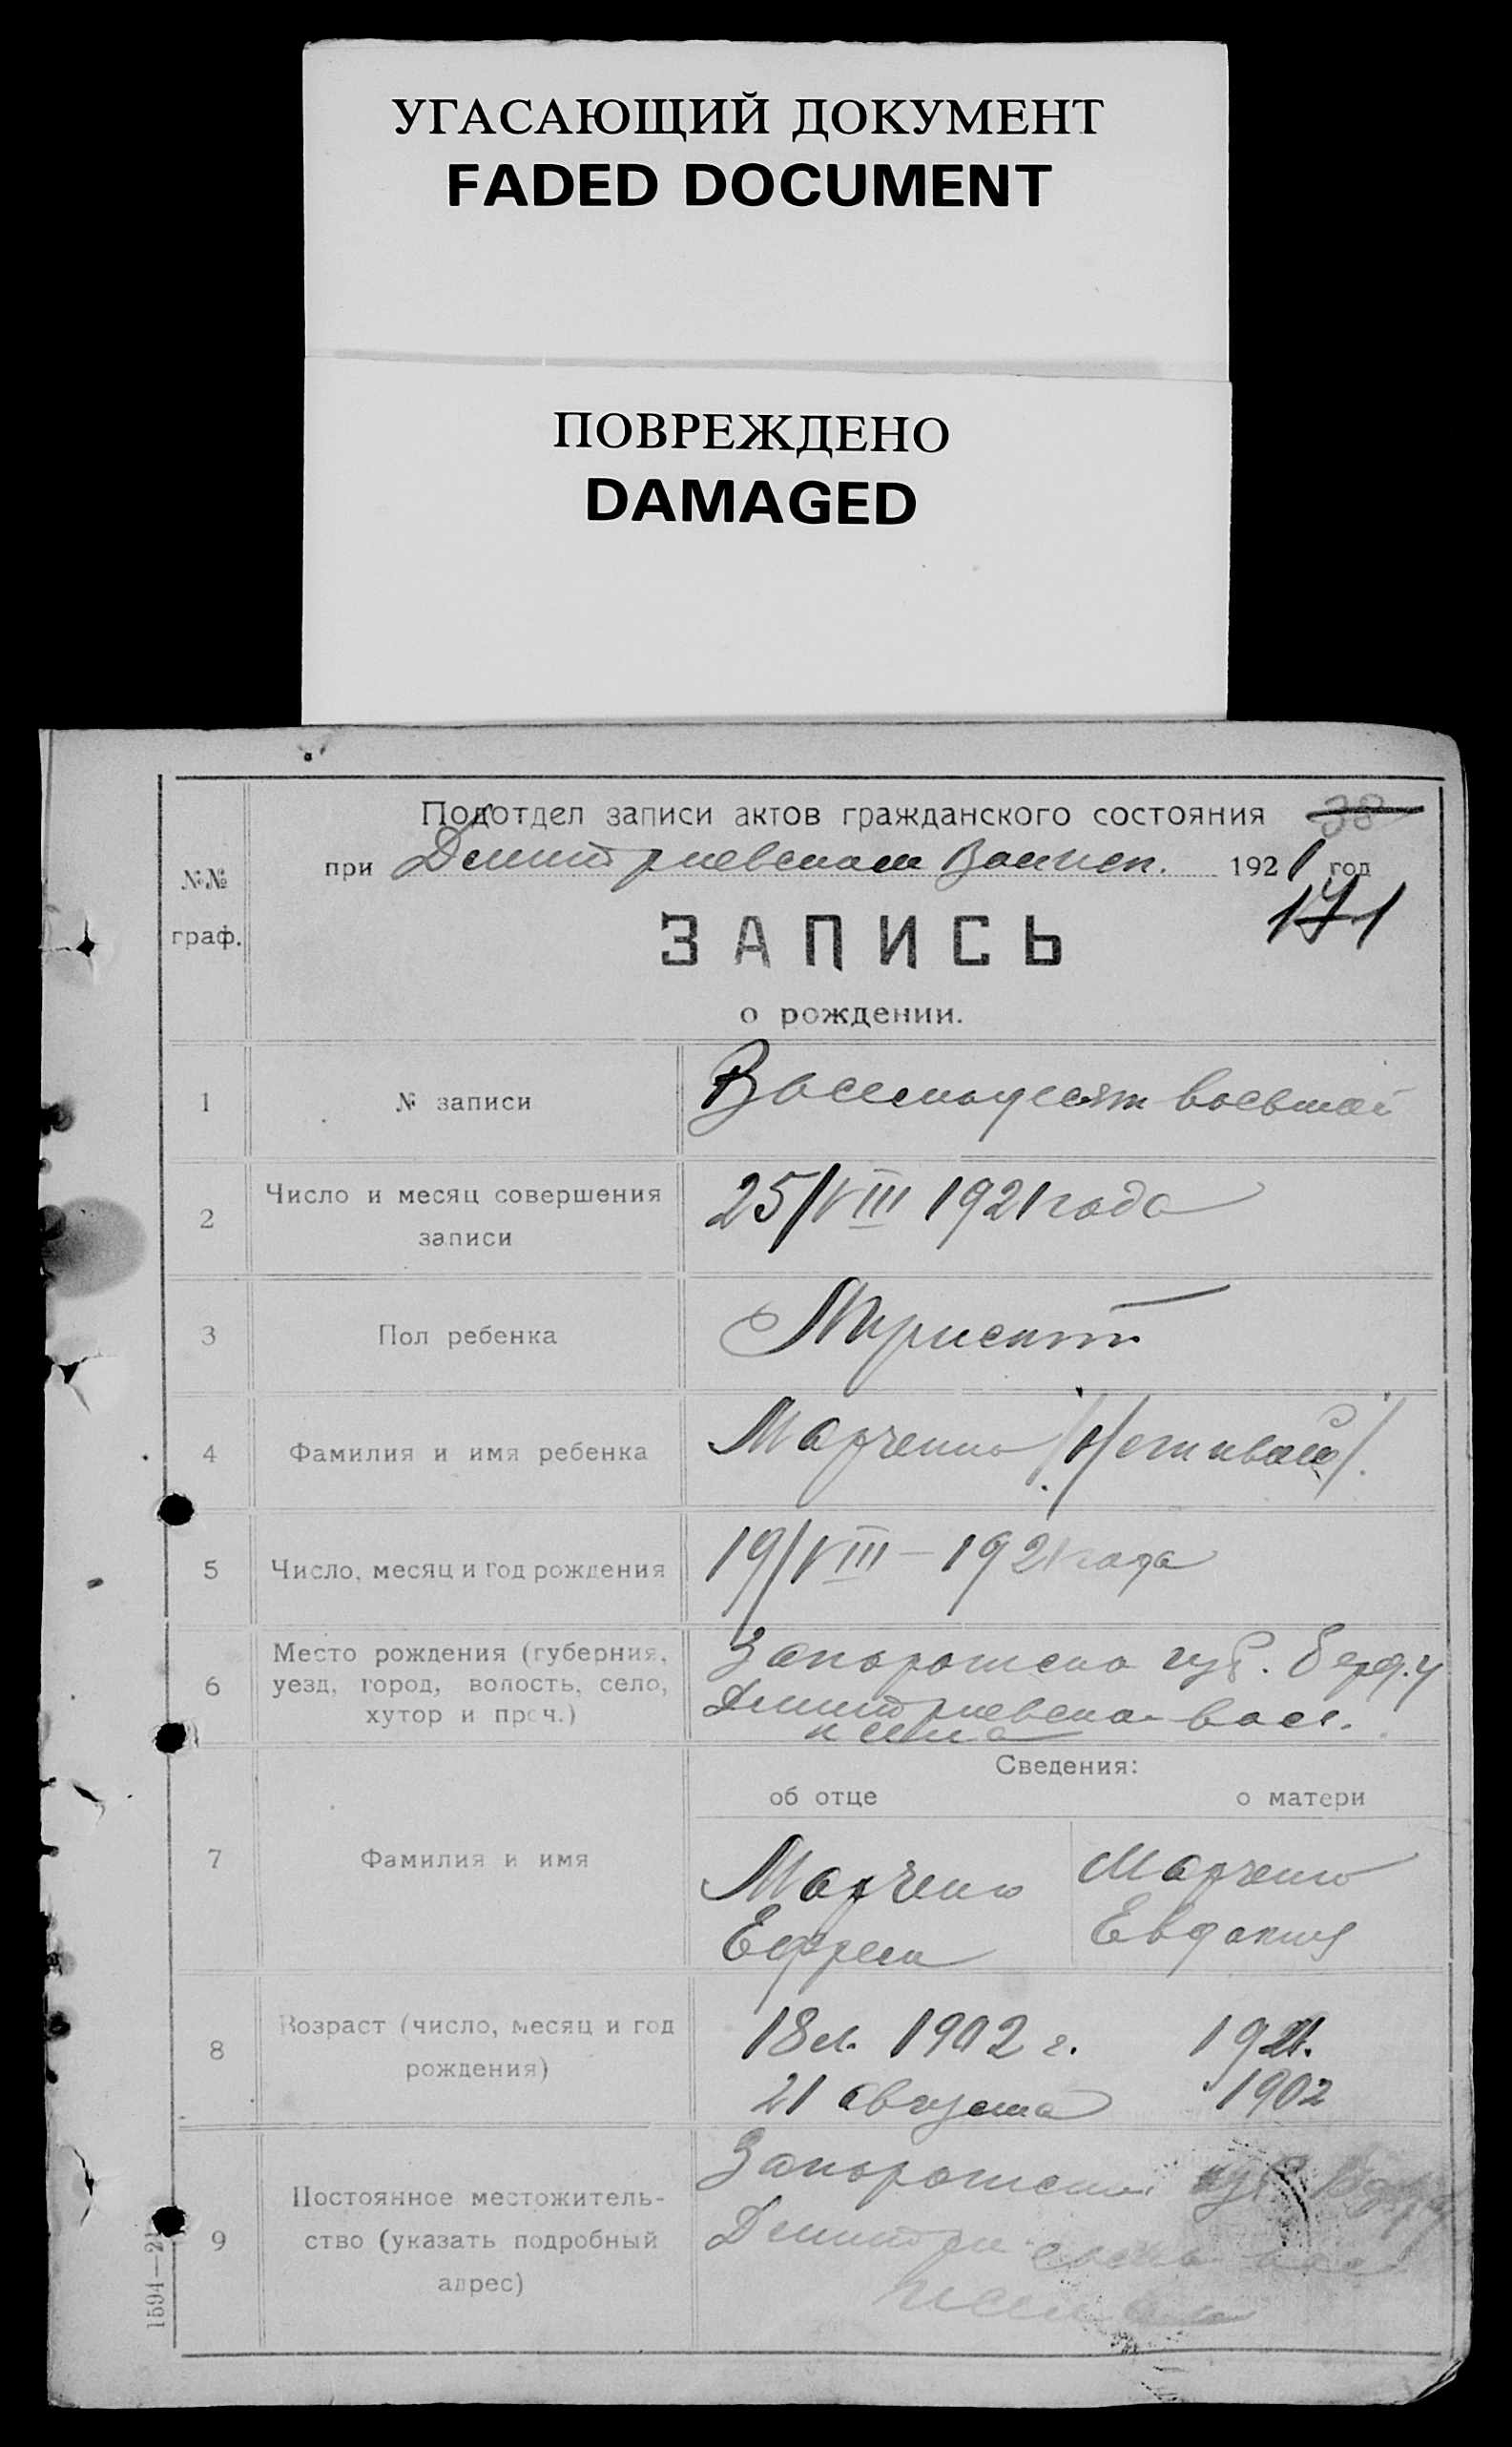 УГАСАЮЩИЙ ДОКУМЕНТ
FADED DOCUMENT
ПОВРЕЖДЕНО
DAMAGED
Подотдел записи актов гражданского состояния 38
при Дмитриевском 1921 год
171
№№
граф.
ЗАПИСЬ
о рождении.
1 № записи
2 Число и месяц совершения
записи
25/VIII 1921 года
3 Пол ребенка
4 Фамилия и имя ребенка Марченко
5 Число, месяц и год рождения 19/VIII – 1921 года
6 Место рождения (губерния,
уезд, город, волость, село,
хутор и проч.)
губ. Берд. у
Дмитриевская
Сведения:
об отце о матери
7 Фамилия и имя
Марченко Марченко
Ефрем Евдокия
8 Возраст (число, месяц и год
рождения)
1902 г.
21 августа 1902
9 Постоянное местожитель-
ство (указать подробный
адрес)
1594—21